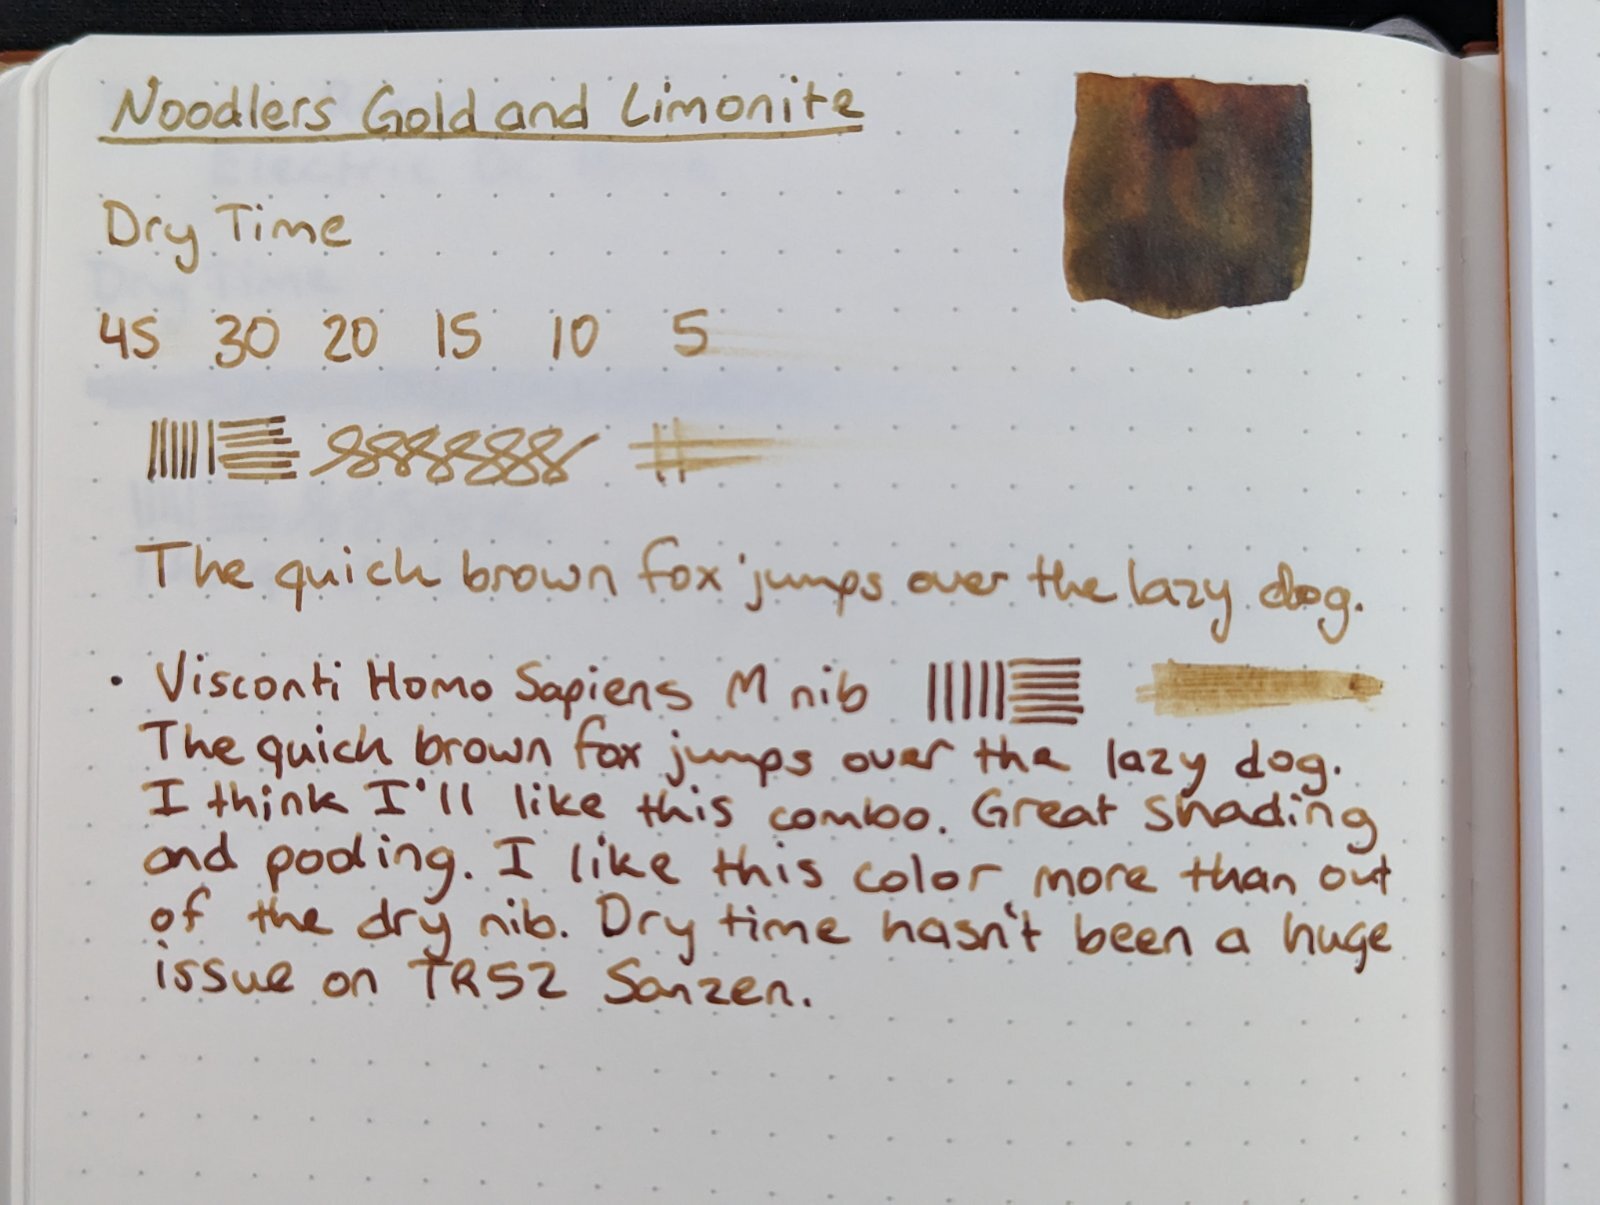 Noodlers Gold and Limonite
Dry Time
45 30 20 15 10 5
The quick brown fox jumps over the lazy dog.
• Visconti Homo Sapiens M nib
The quick brown fox jumps over the lazy dog.
I think I'll like this combo. Great shading
and pooling. I like this color more than out
of the dry nib. Dry time hasn't been a huge
issue on TR52 Sanzen.